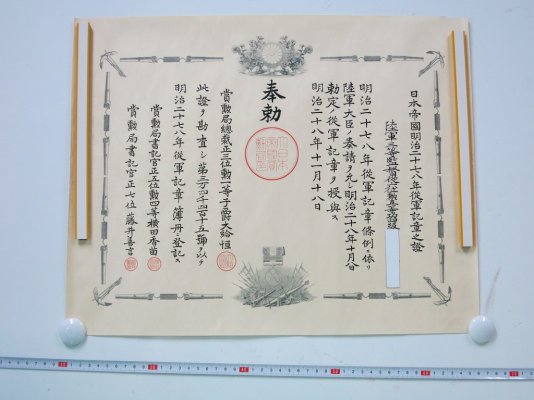 日本帝國明治二十七八年從軍記章之證
陸軍
明治二十七八年從軍記章條例ニ依リ
陸軍大臣ノ奏請ヲ允シ明治二十八年十月八日
勅定ノ從軍記章ヲ授與ス
明治二十八年十一月十八日
奉勅
大日本帝國賞勳局印
賞勳局總裁正三位勳一等子爵大給恒
此證ヲ勘査シ第三万四千四百十五號ヲ以テ
明治二十七八年從軍記章簿册ニ登記ス
賞勳局書記官正五位勳四等横田香苗
賞勳局書記官正七位藤井善言